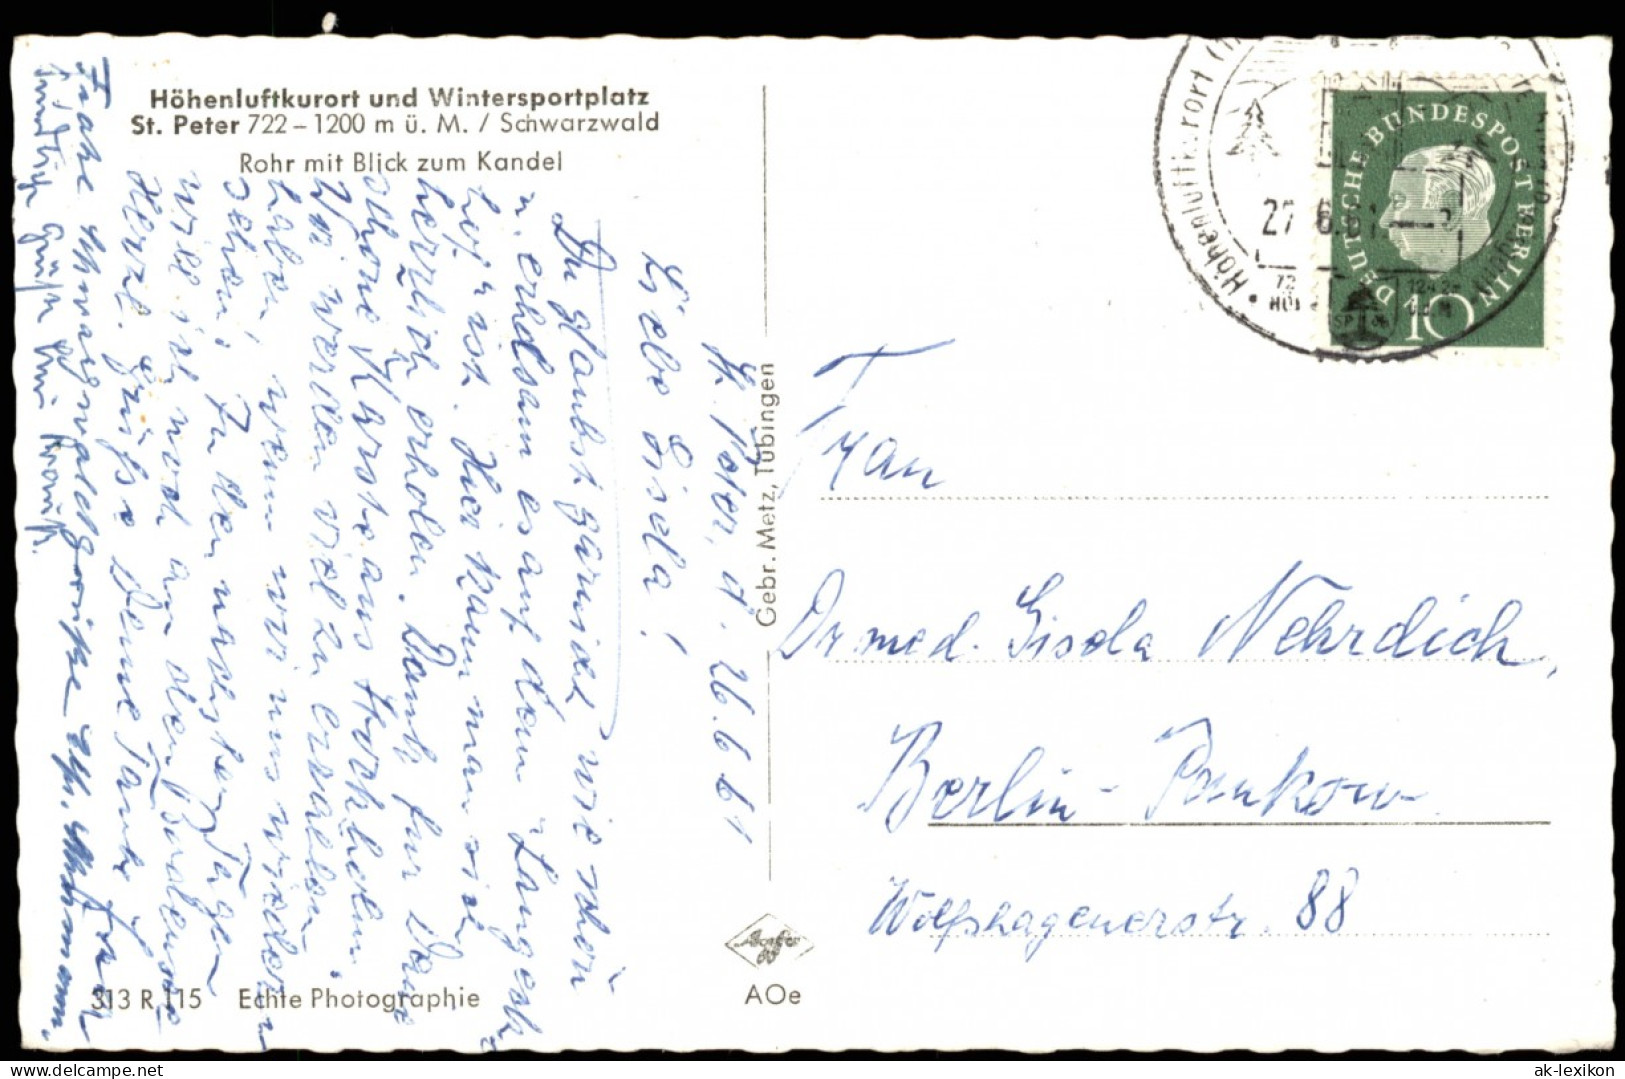 Höhenluftkurort und Wintersportplatz
St. Peter 722 – 1200 m ü. M. / Schwarzwald
Rohr mit Blick zum Kandel
St. Peter, d. 26.6.61
Liebe Gisela!
Du glaubst garnicht wie schön
u. erholsam es auf dem "Langeck-
hof" ist. Hier kann man sich
herzlich erholen. Dank für Deine
schöne Karte aus Hirkheln.
Wir werden viel zu erzählen
haben, wenn wir uns wieder
sehen. In den nächsten Tagen
will ich noch an den Bodensee
Herzl. Grüße Deine Tante
Frohe Schwarzwaldgrüße
Gebr. Metz, Tübingen
313 R 115 Echte Photographie
Agfa
AOe
Höhenluftkurort
27.6.61
DEUTSCHE BUNDESPOST BERLIN
10
Frau
Dr med. Gisela Nehrdich,
Berlin-Pankow
Wolfshagenerstr. 88
ak-lexikon